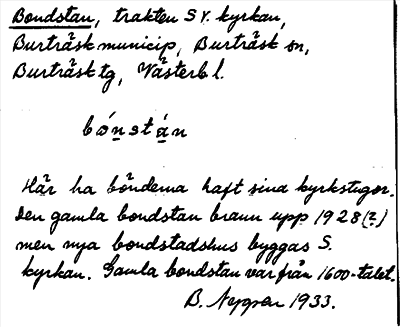 Bondstan, trakten S v. kyrkan,
Burträsk municip, Burträsk sn,
Burträsk tg, Västerb l.
bónstán
Här ha bönderna haft sina kyrkstugor.
Den gamla bondstan brann upp 1928(?)
men nya bondstadshus byggas S.
kyrkan. Gamla bondstan var från 1600-talet.
B. 1933.